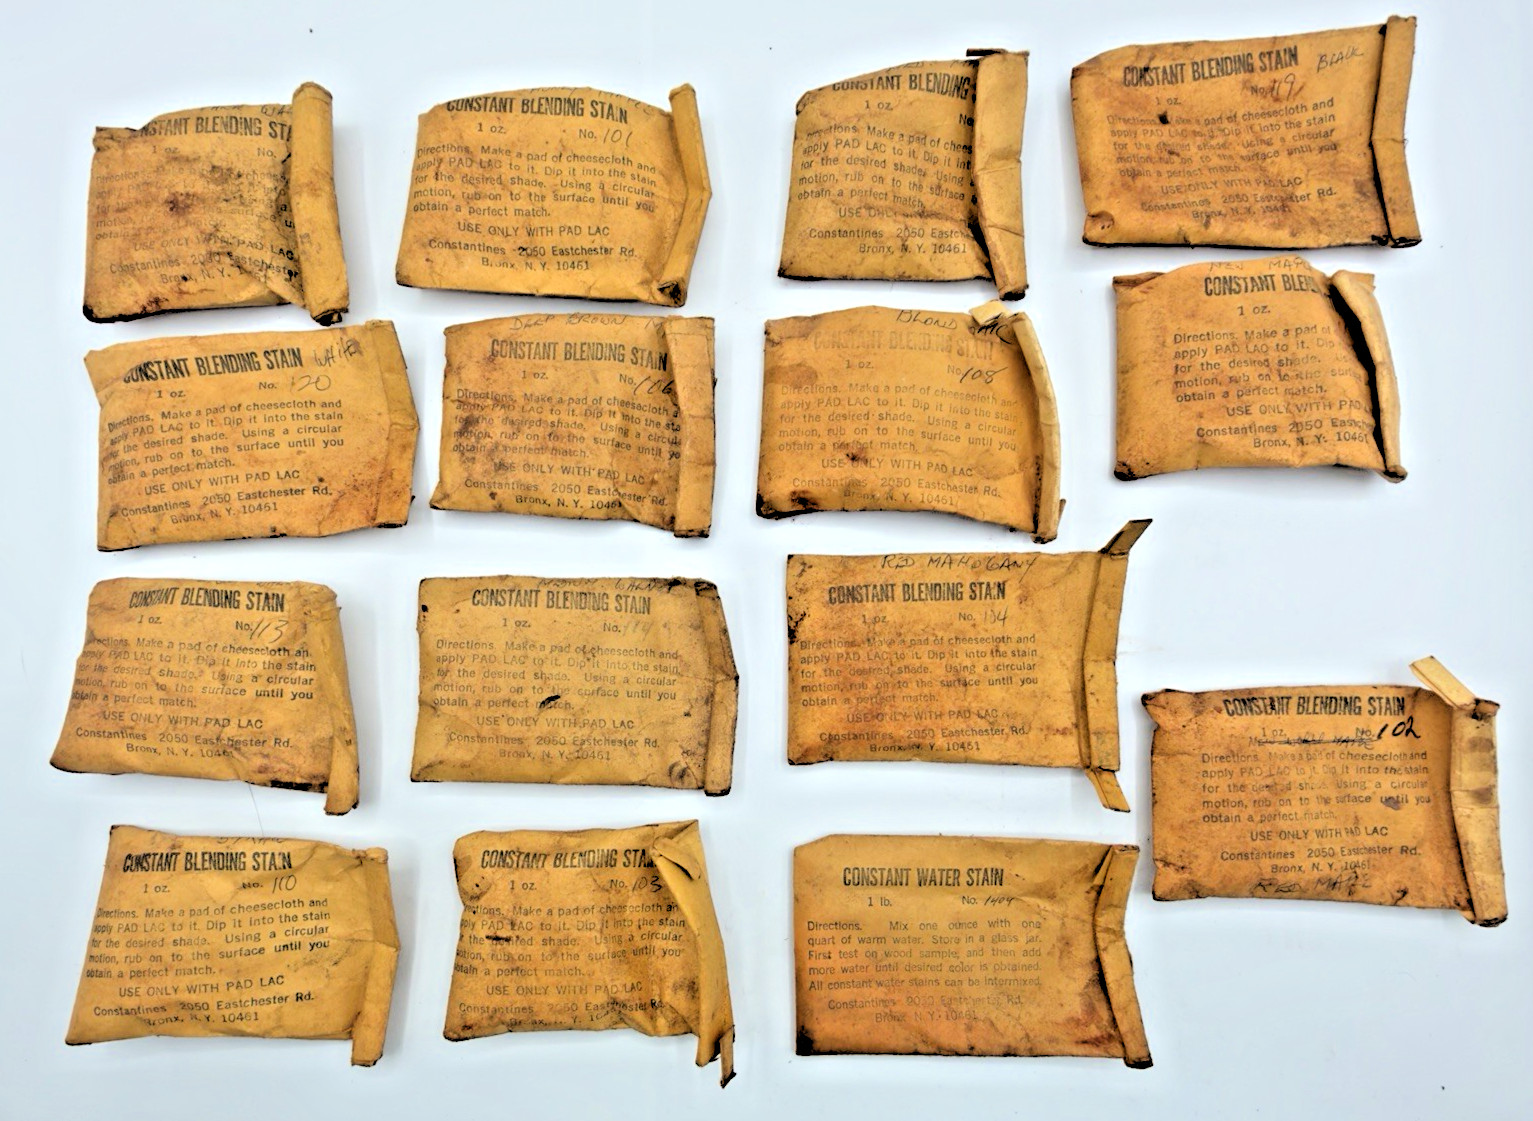 STANT BLENDING
1 oz. No.
USE ONLY WITH PAD LAC
Constantines 2050 Eastchester
Bronx, N. Y.
CONSTANT BLENDING STAIN
1 oz. No. 101
Directions. Make a pad of cheesecloth and
apply PAD LAC to it. Dip it into the stain
for the desired shade. Using a circular
motion, rub on to the surface until you
obtain a perfect match.
USE ONLY WITH PAD LAC
Constantines 2050 Eastchester Rd.
Bronx, N. Y. 10461
CONSTANT BLENDING
1 oz.
Directions. Make a pad of chee
apply PAD LAC to it. Dip it int
for the desired shade. Using
motion, rub on to the surface
obtain a perfect match.
USE ONL
Constantines 2050 Eastch
Bronx, N. Y. 10461
CONSTANT BLENDING STAIN BLACK
1 oz. No. 119
Directions. Make a pad of cheesecloth and
apply PAD LAC to it. Dip it into the stain
for the desired shade. Using a circular
motion, rub on to the surface until you
obtain a perfect match.
USE ONLY WITH PAD LAC
Constantines 2050 Eastchester Rd.
Bronx, N. Y. 10461
CONSTANT BLENDING STAIN WHITE
1 oz. No. 120
Directions. Make a pad of cheesecloth and
apply PAD LAC to it. Dip it into the stain
for the desired shade. Using a circular
motion, rub on to the surface until you
obtain a perfect match.
USE ONLY WITH PAD LAC
Constantines 2050 Eastchester Rd.
Bronx, N. Y. 10461
DEEP BROWN
CONSTANT BLENDING STAIN
1 oz. No. 106
Directions. Make a pad of cheesecloth a
apply PAD LAC to it. Dip it into the sta
for the desired shade. Using a circul
motion, rub on to the surface until yo
obtain a perfect match.
USE ONLY WITH PAD LAC
Constantines 2050 Eastchester Rd.
Bronx, N. Y. 10461
BLOND
CONSTANT BLENDING STAIN
1 oz. No. 108
Directions. Make a pad of cheesecloth and
apply PAD LAC to it. Dip it into the stain
for the desired shade. Using a circular
motion, rub on to the surface until you
obtain a perfect match.
USE ONLY WITH PAD LAC
Constantines 2050 Eastchester Rd.
Bronx, N. Y. 10461
NEW MAPL
CONSTANT BLEND
1 oz.
Directions. Make a pad of
apply PAD LAC to it. Dip
for the desired shade. Us
motion, rub on to the surf
obtain a perfect match.
USE ONLY WITH PAD
Constantines 2050 Eastch
Bronx, N. Y. 10461
CONSTANT BLENDING STAIN
1 oz. No. 113
Directions. Make a pad of cheesecloth an
apply PAD LAC to it. Dip it into the stain
for the desired shade. Using a circular
motion, rub on to the surface until you
obtain a perfect match.
USE ONLY WITH PAD LAC
Constantines 2050 Eastchester Rd.
Bronx, N. Y. 10461
CONSTANT BLENDING STAIN
1 oz. No.
Directions. Make a pad of cheesecloth and
apply PAD LAC to it. Dip it into the stain
for the desired shade. Using a circular
motion, rub on to the surface until you
obtain a perfect match.
USE ONLY WITH PAD LAC
Constantines 2050 Eastchester Rd.
Bronx, N. Y. 10461
RED MAHOGANY
CONSTANT BLENDING STAIN
1 oz. No. 104
Directions. Make a pad of cheesecloth and
apply PAD LAC to it. Dip it into the stain
for the desired shade. Using a circular
motion, rub on to the surface until you
obtain a perfect match.
USE ONLY WITH PAD LAC
Constantines 2050 Eastchester Rd.
Bronx, N. Y. 10461
CONSTANT BLENDING STAIN
1 oz. No. 102
Directions. Make a pad of cheesecloth and
apply PAD LAC to it. Dip it into the stain
for the desired shade. Using a circular
motion, rub on to the surface until you
obtain a perfect match.
USE ONLY WITH PAD LAC
Constantines 2050 Eastchester Rd.
Bronx, N. Y. 10461
RED MAPLE
CONSTANT BLENDING STAIN
1 oz. No. 110
Directions. Make a pad of cheesecloth and
apply PAD LAC to it. Dip it into the stain
for the desired shade. Using a circular
motion, rub on to the surface until you
obtain a perfect match.
USE ONLY WITH PAD LAC
Constantines 2050 Eastchester Rd.
Bronx, N. Y. 10461
CONSTANT BLENDING STAIN
1 oz. No. 103
Directions. Make a pad of cheesecloth an
apply PAD LAC to it. Dip it into the stain
for the desired shade. Using a circular
motion, rub on to the surface until you
obtain a perfect match.
USE ONLY WITH PAD LAC
Constantines 2050 Eastchester Rd.
Bronx, N. Y. 10
CONSTANT WATER STAIN
1 lb. No. 1404
Directions. Mix one ounce with one
quart of warm water. Store in a glass jar.
First test on wood sample, and then add
more water until desired color is obtained.
All constant water stains can be intermixed.
Constantines 2050 Eastchester Rd.
Bronx, N. Y. 10461